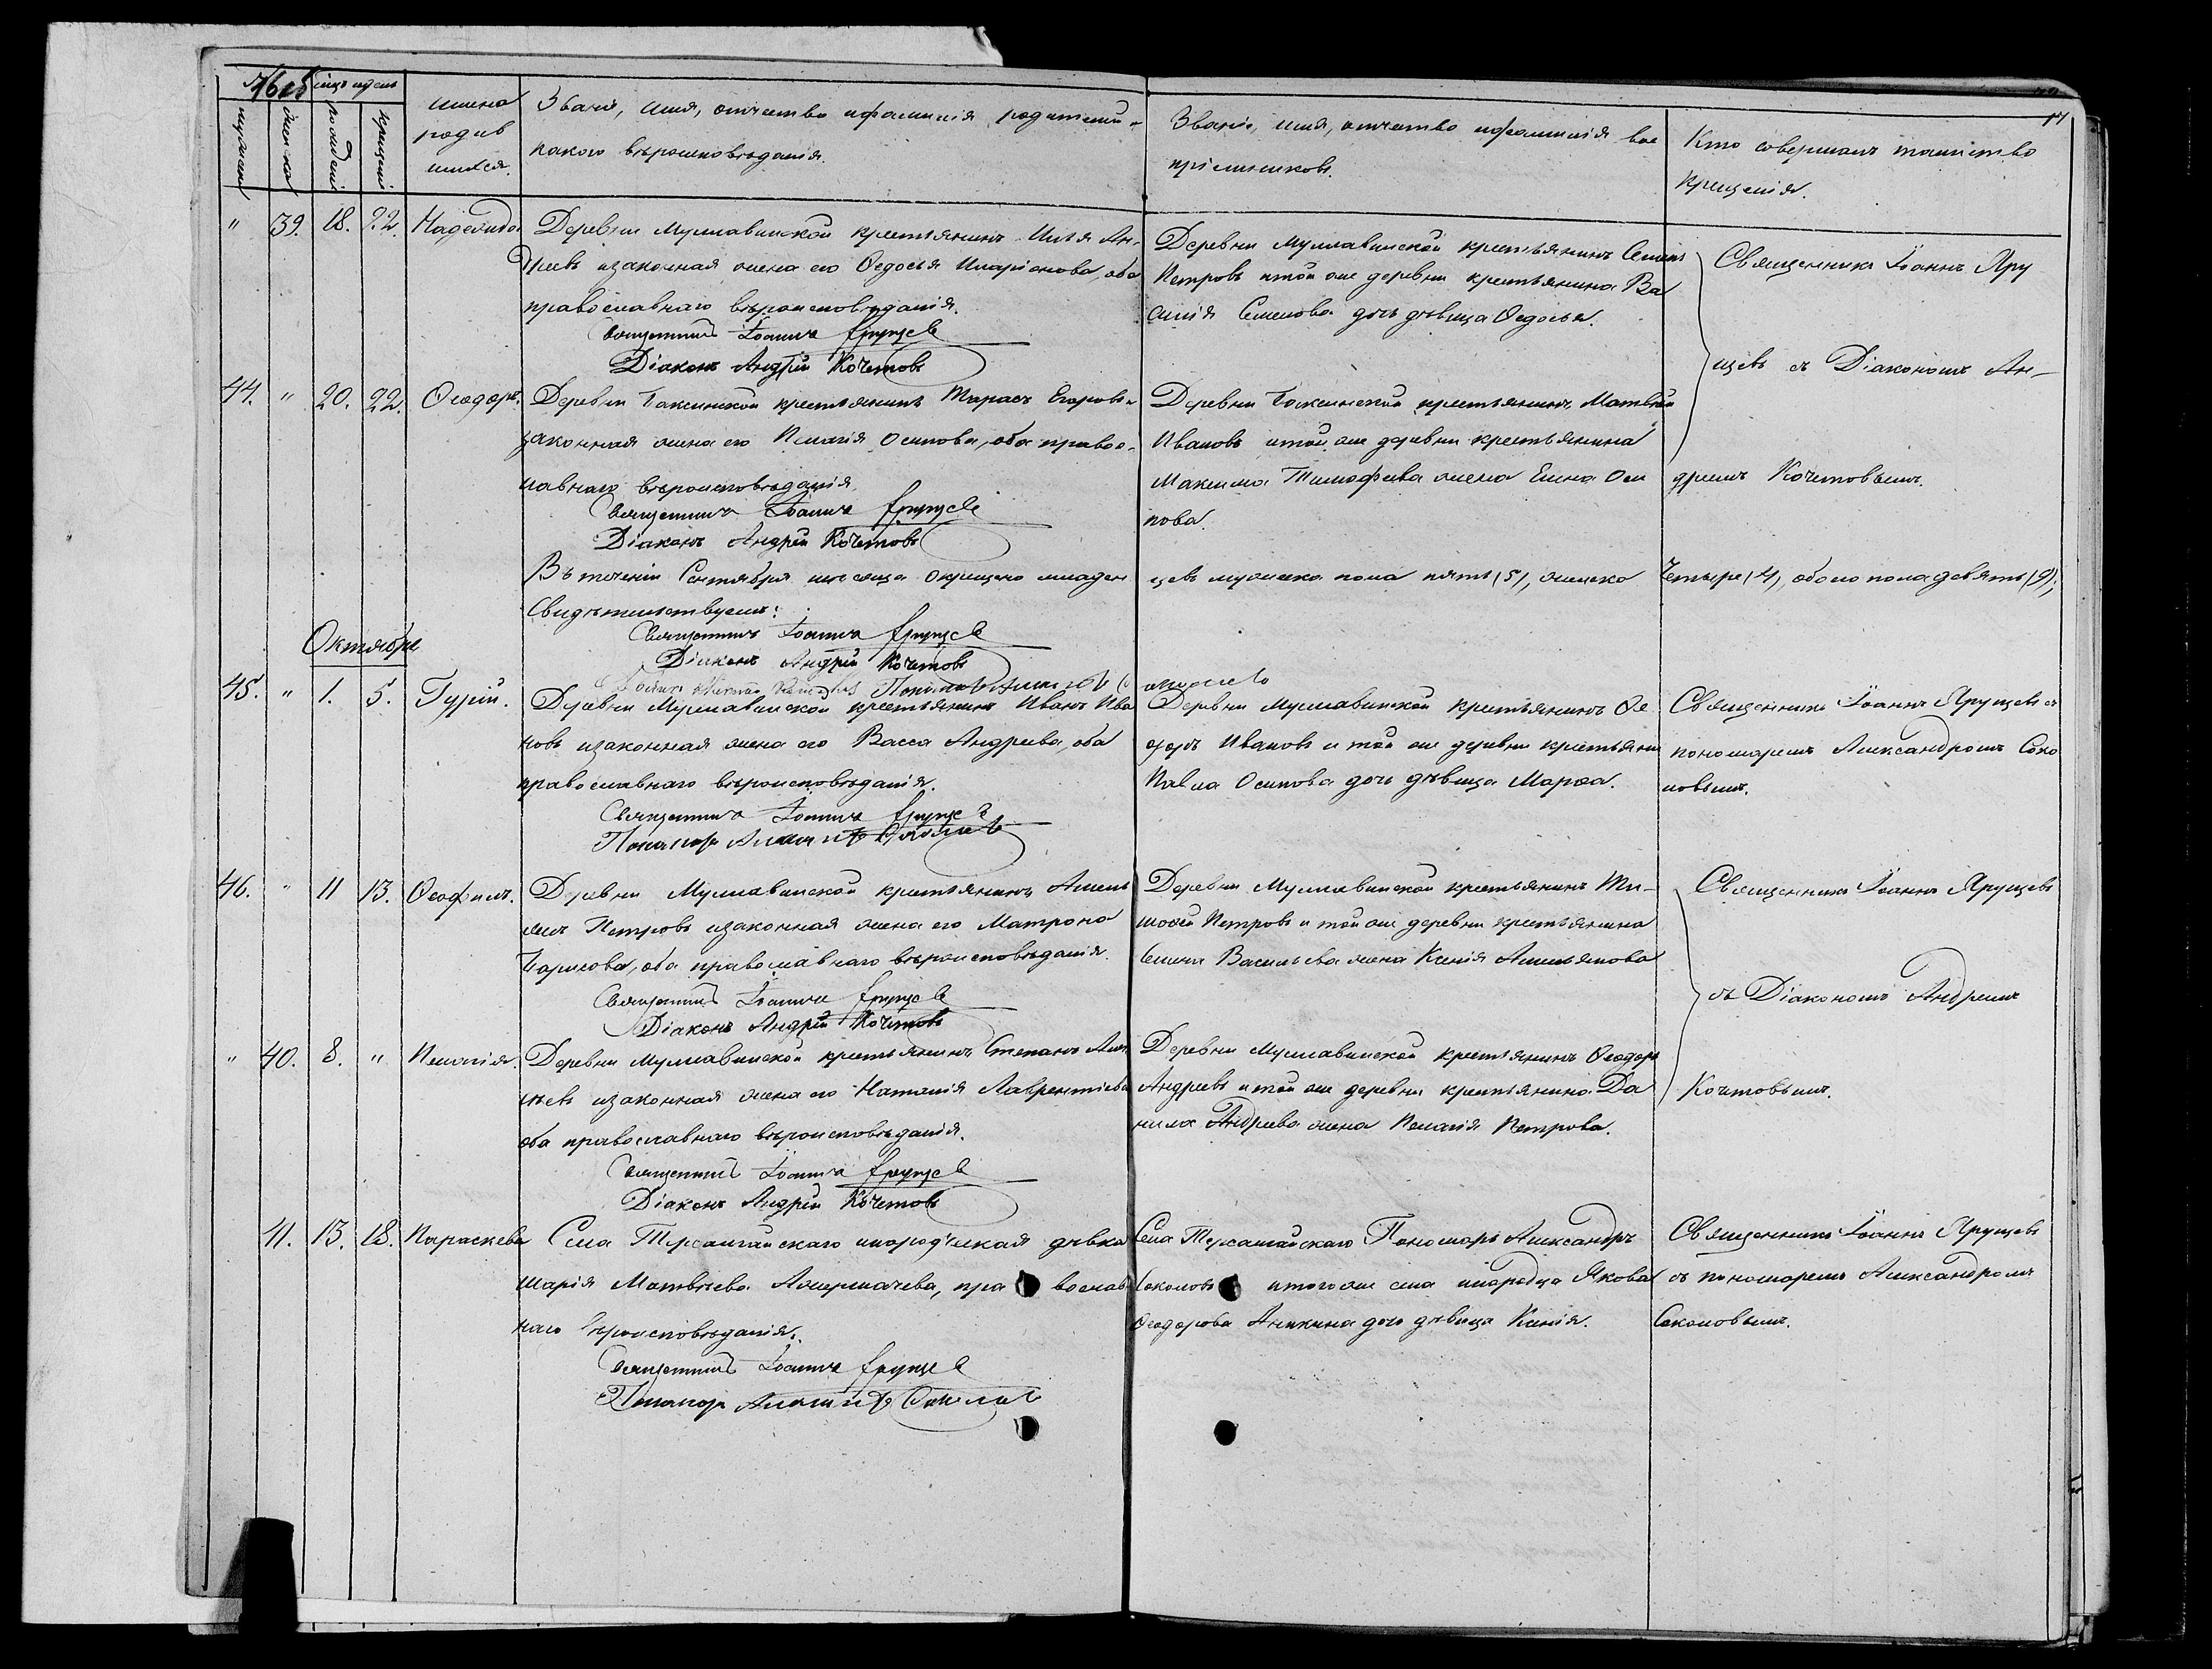 мѣсяцъ и день
мужеска
женска
рожденія
крещенія
имена
родив
шихся.
Званіе, имя, отчество и фамилія родителей и
какого вѣроисповѣданія.
Званіе, имя, отчество и фамилія вос
пріемниковъ.
Кто совершалъ таинство
крещенія.
17
" 39. 18. 22. Надежда.
Деревни Муллавинской крестьянинъ Илья Ан-
дреевъ и законная жена его Ѳедосья Иларіонова, оба
православнаго вѣроисповѣданія.
Священникъ Іоаннъ Ярущевъ
Діаконъ Андрей Кочетовъ
Деревни Муллавинской крестьянинъ Семенъ
Петровъ и той же деревни крестьянина Ва
силія Семенова дочь дѣвица Ѳедосья.
Священникъ Іоаннъ Яру
щевъ съ Діакономъ Ан-
дреемъ Кочетовымъ.
44. " 20. 22. Ѳеодоръ.
Деревни Баксинской крестьянинъ Тарасъ Егоровъ и
законная жена его Пелагія Осипова, оба правос-
лавнаго вѣроисповѣданія
Священникъ Іоаннъ Ярущевъ
Діаконъ Андрей Кочетовъ
Деревни Баксинской крестьянинъ Матвей
Ивановъ и той же деревни крестьянина
Максима Тимофеева жена Елена Оси
пова.
Въ теченіи Сентября месяца окрещено младен
цевъ мужеска пола пять (5), женска
Четыре (4), обоего пола девять (9),
Свидѣтельствуемъ:
Священникъ Іоаннъ Ярущевъ
Діаконъ Андрей Кочетовъ
Октябрь
45. " 1. 5. Гурій.
Деревни Муллавинской крестьянинъ Иванъ Ива
новъ и законная жена его Васса Андреева, оба
православнаго вѣроисповѣданія.
Священникъ Іоаннъ Ярущевъ
Пономарь Александръ Соколовъ
Деревни Муллавинской крестьянинъ Ѳе
одоръ Ивановъ и той же деревни крестьяни
Павла Осипова дочь дѣвица Марѳа.
Священникъ Іоаннъ Ярущевъ съ
пономаремъ Александромъ Соко
ловымъ.
46. " 11 13. Ѳеофилъ.
Деревни Муллавинской крестьянинъ Амель
янъ Петровъ и законная жена его Матрона
Борисова, оба православнаго вѣроисповѣданія.
Священникъ Іоаннъ Ярущевъ
Діаконъ Андрей Кочетовъ
Деревни Муллавинской крестьянинъ Ти-
моѳей Петровъ и той же деревни крестьянина
Семена Васильева жена Ксенія Амельянова
Священникъ Іоаннъ Ярущевъ
съ Діакономъ Андреемъ
Кочетовымъ.
" 40. 8. " Пелагія.
Деревни Муллавинской крестьянинъ Степанъ
и законная жена его Наталія Лаврентіева
оба православнаго вѣроисповѣданія.
Священникъ Іоаннъ Ярущевъ
Діаконъ Андрей Кочетовъ
Деревни Муллавинской крестьянинъ Ѳеодоръ
Андреевъ и той же деревни крестьянина Да
нила Андреева жена Пелагія Петрова.
41. 13. 18. Параскева
Села Терсангайскаго инородческая дѣвка
Марія Матвѣева, православ
наго вѣроисповѣданія.
Священникъ Іоаннъ Ярущевъ
Пономарь Александръ Соколовъ
Села Терсангайскаго Пономарь Александръ
Соколовъ и того же села инородца Якова
Ѳеодорова Аникина дочь дѣвица Ксенія.
Священникъ Іоаннъ Ярущевъ
съ пономаремъ Александромъ
Соколовымъ.